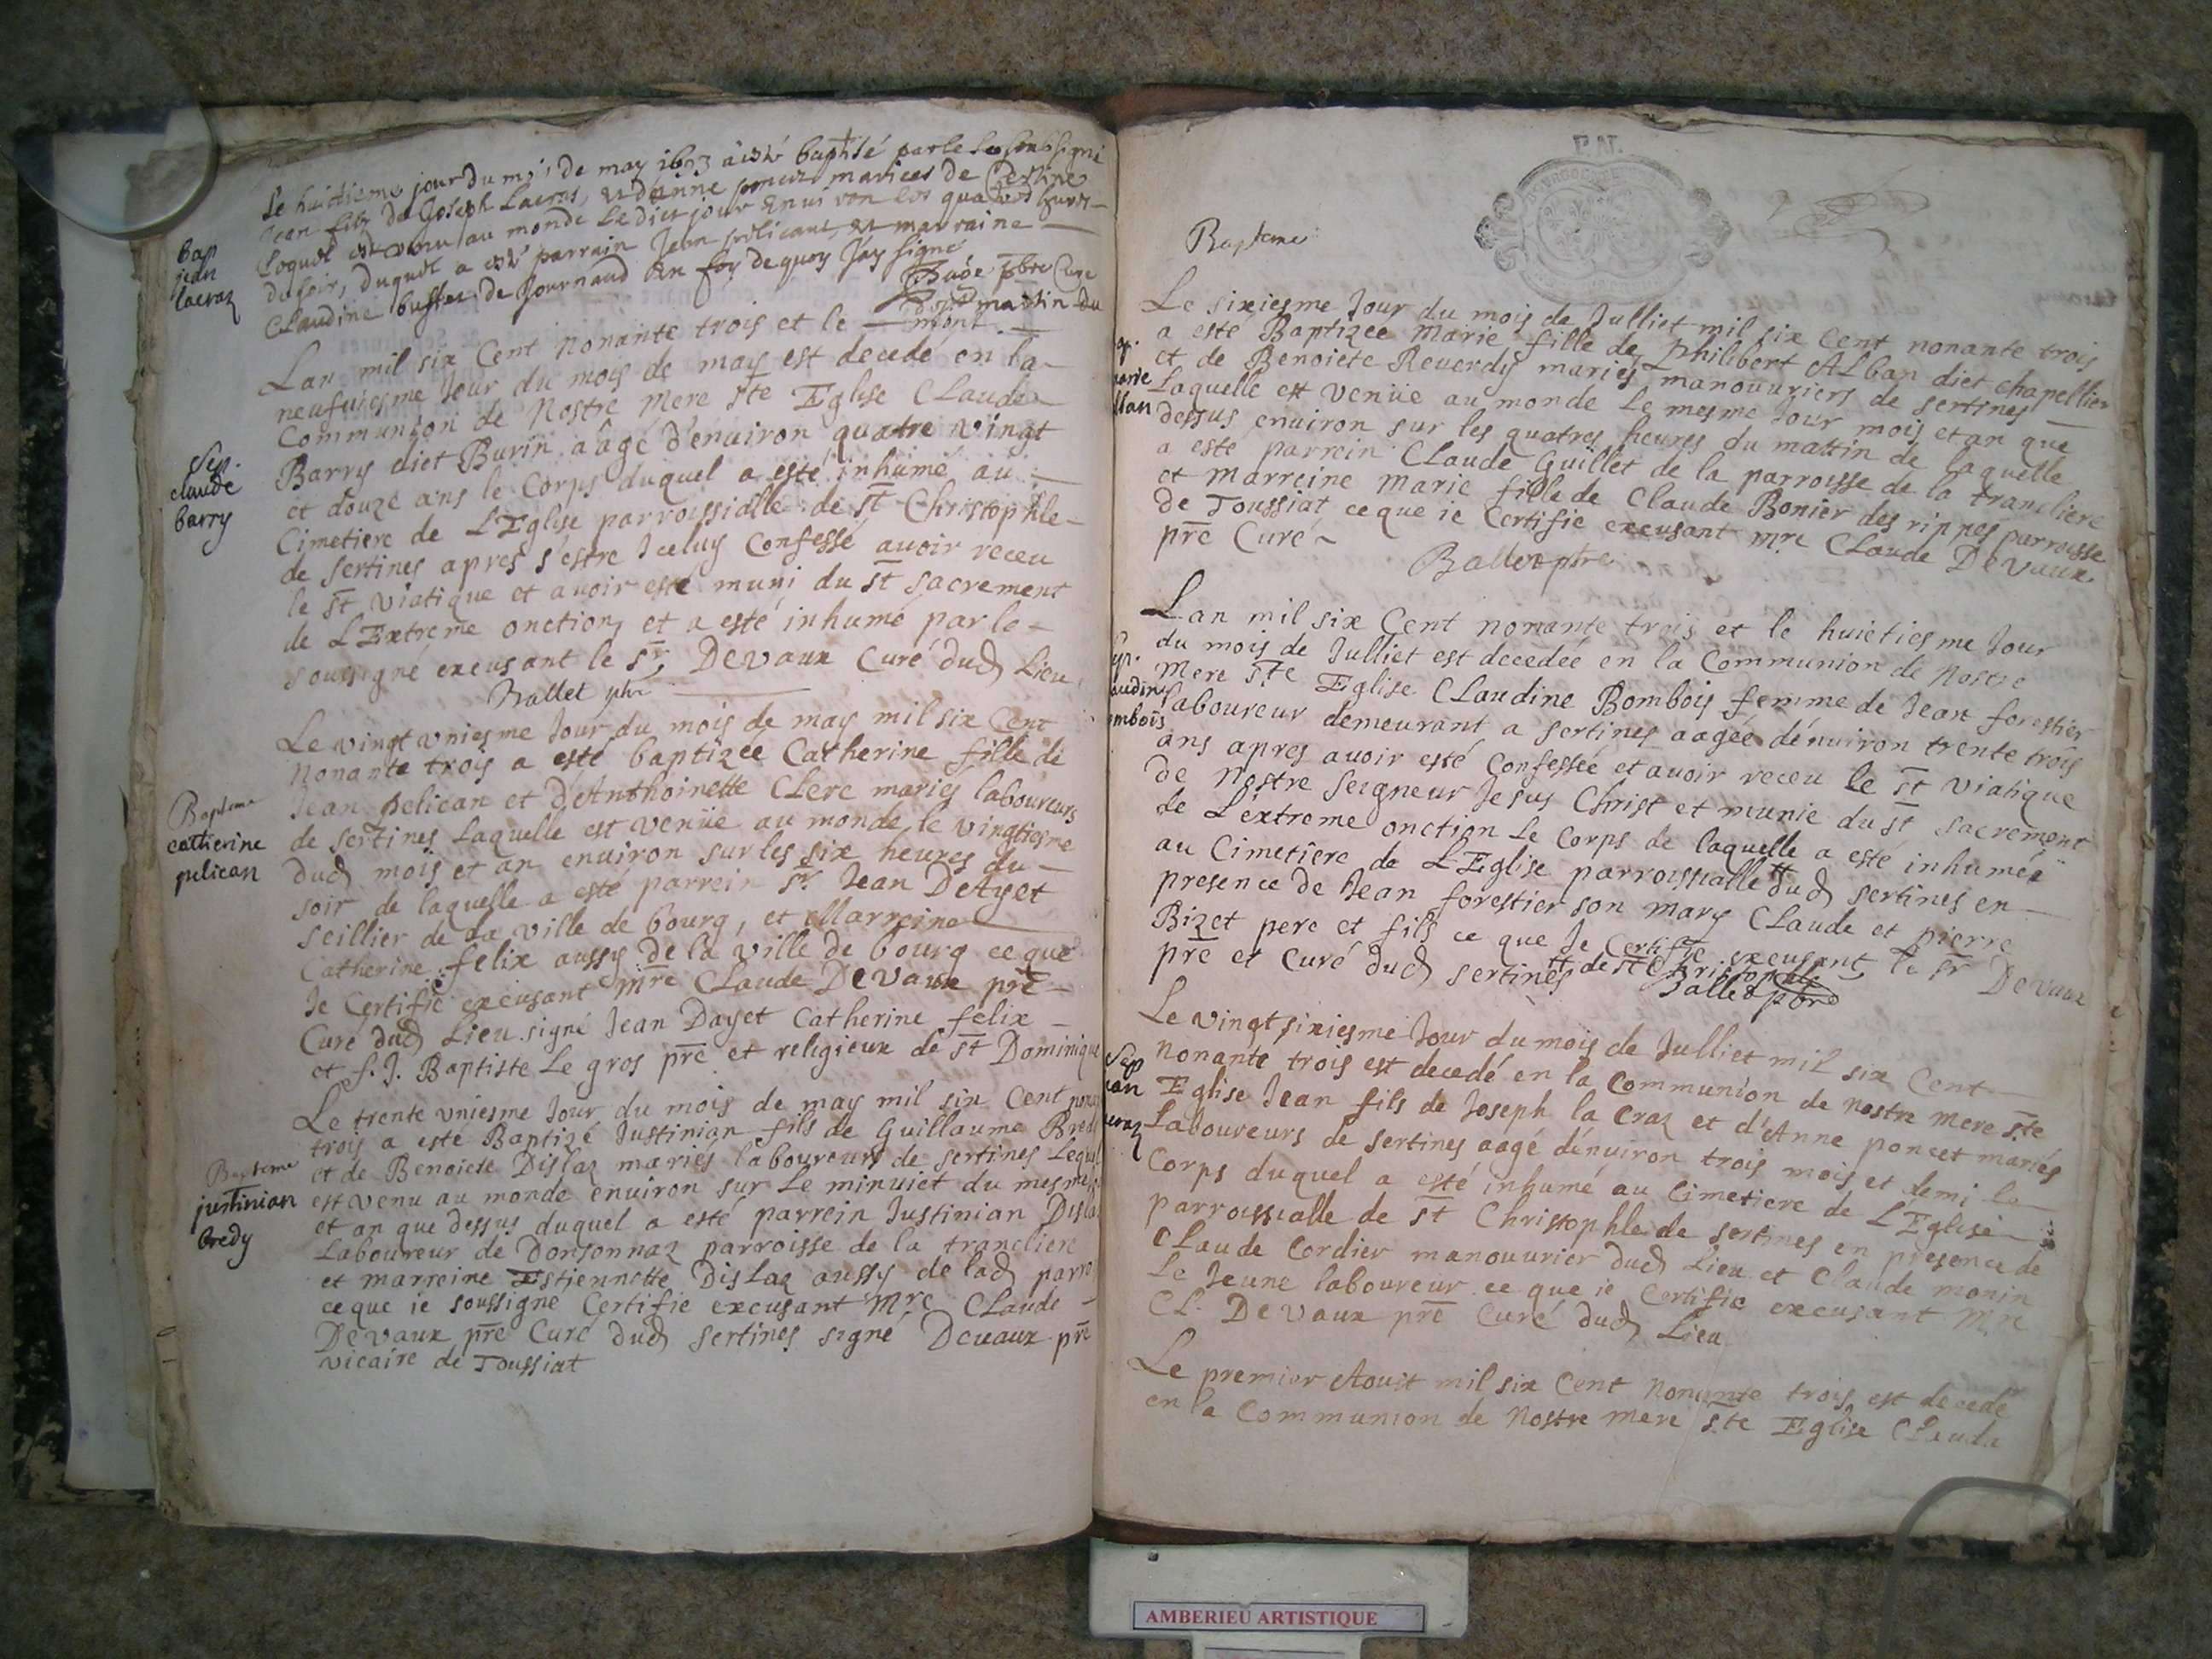 Le huictieme jour du mois de may 1693 a esté baptisé par le soubsigné
Jean fils de Joseph Lacras, et d'anne poncet mariees de Certine
Loquel est venu au monde Le dict jour environ les quatres heures
du soir, duquel a esté parrain Jean pelican et marraine
Claudine buffet de Journand En foy dequoy J'ay signé
pbre Curé
de St martin du
mont
bap
jean
lacraz
Lan mil six Cent Nonante trois et le
neufuiesme Jour du mois de may est decedé en la
Communion de Nostre Mere ste Eglise Claude
Barry dict Burin aagé d'enuiron quatre vingt
et douze ans le Corps duquel a esté inhumé au
Cimetiere de L'Eglise parroissialle de st Christophle
de sertines apres s'estre Iceluy Confessé auoir receu
le st viatique et auoir esté muni du st sacrement
de L'Extreme onction, et a esté inhumé par le
soussigné excusant le sr Devaux Curé dud Lieu
Ballet pbr
Sep.
claude
barry
Le vingt vniesme Jour du mois de may mil six Cent
Nonante trois a esté baptizée Catherine fille de
Jean pelican et d'Anthoinette Clerc mariés laboureurs
de sertines Laquelle est venüe au monde le vingtiesme
dud mois et an enuiron sur les six heures du
soir de laquelle a esté parrein sr Jean DeAyet
seillier de la ville de bourg, et Marreine
Catherine felix aussy de la ville de bourg ce que
Je Certifie excusant mre Claude Devaux pre
Curé dud Lieu signé Jean Dayet Catherine felix
et f. J. Baptiste Le gros pre et religieux de st Dominique
Bapteme
catherine
pelican
Le trente vniesme Jour du mois de may mil six Cent
trois a esté Baptizé Justinian fils de Guillaume
et de Benoicte Dislaz mariés laboureurs de sertines Lequel
est venu au monde enuiron sur le minuict du mesme
et an que dessus duquel a esté parrein Justinian
Laboureur de Donsonnaz parroisse de la trancliere
et marreine Estiennette Dislaz aussy de lad
ce que ie soussigné Certifie excusant Mre Claude
Devaux pre Curé dud sertines signé Deuaux pre
vicaire de Toussiat
Bapteme
justinian
bredy
Bapteme
Le sixiesme Jour du mois de Julliet mil six Cent nonante trois
a esté Baptizee Marie fille de Philibert Alban dict chapellier
et de Benoicte Reuerdy mariés manouuriers de sertines
Laquelle est venüe au monde le mesme Jour mois et an que
dessus enuiron sur les quatres heures du mattin de laquelle
a esté parrein Claude Guillet de la parroisse de la trancliere
et marreine Marie fille de Claude Bonier des rippes parroisse
de Toussiat ce que ie Certifie excusant Mre Claude Devaux
pre Curé
Ballet pbre
Lan mil six Cent nonante trois et le huictiesme Jour
du mois de Julliet est decedée en la Communion de Nostre
Mere ste Eglise Claudine Bombois femme de Jean forestier
laboureur demeurant a sertines aagée d'enuiron trente trois
ans apres auoir esté Confessée et auoir receu le st viatique
de Nostre Seigneur Jesus Christ et munie du st sacrement
de L'extreme onction le Corps de laquelle a esté inhumée
au Cimetiere de L'Eglise parroissialle dud sertines en
presence de Jean forestier son mary Claude et pierre
Bizet pere et fils ce que Je Certifie excusant le sr Devaux
pre et Curé dud sertines de st Christophle
Ballet pbre
Le vingt sixiesme Jour du mois de Julliet mil six Cent
nonante trois est decedé en la Communion de nostre mere ste
Eglise Jean fils de Joseph la Craz et d'Anne poncet mariés
Laboureurs de sertines aagé d'enuiron trois mois et demi le
Corps duquel a esté inhumé au Cimetiere de L'Eglise
parroissialle de st Christophle de sertines en presence de
Claude Cordier manouurier dud Lieu et Claude monin
Le Jeune laboureur ce que ie Certifie excusant Mre
Cl. Devaux pre Curé dud Lieu
Le premier Aoust mil six Cent Nonante trois est decedé
en la Communion de Nostre mere ste Eglise Claude
AMBERIEU ARTISTIQUE